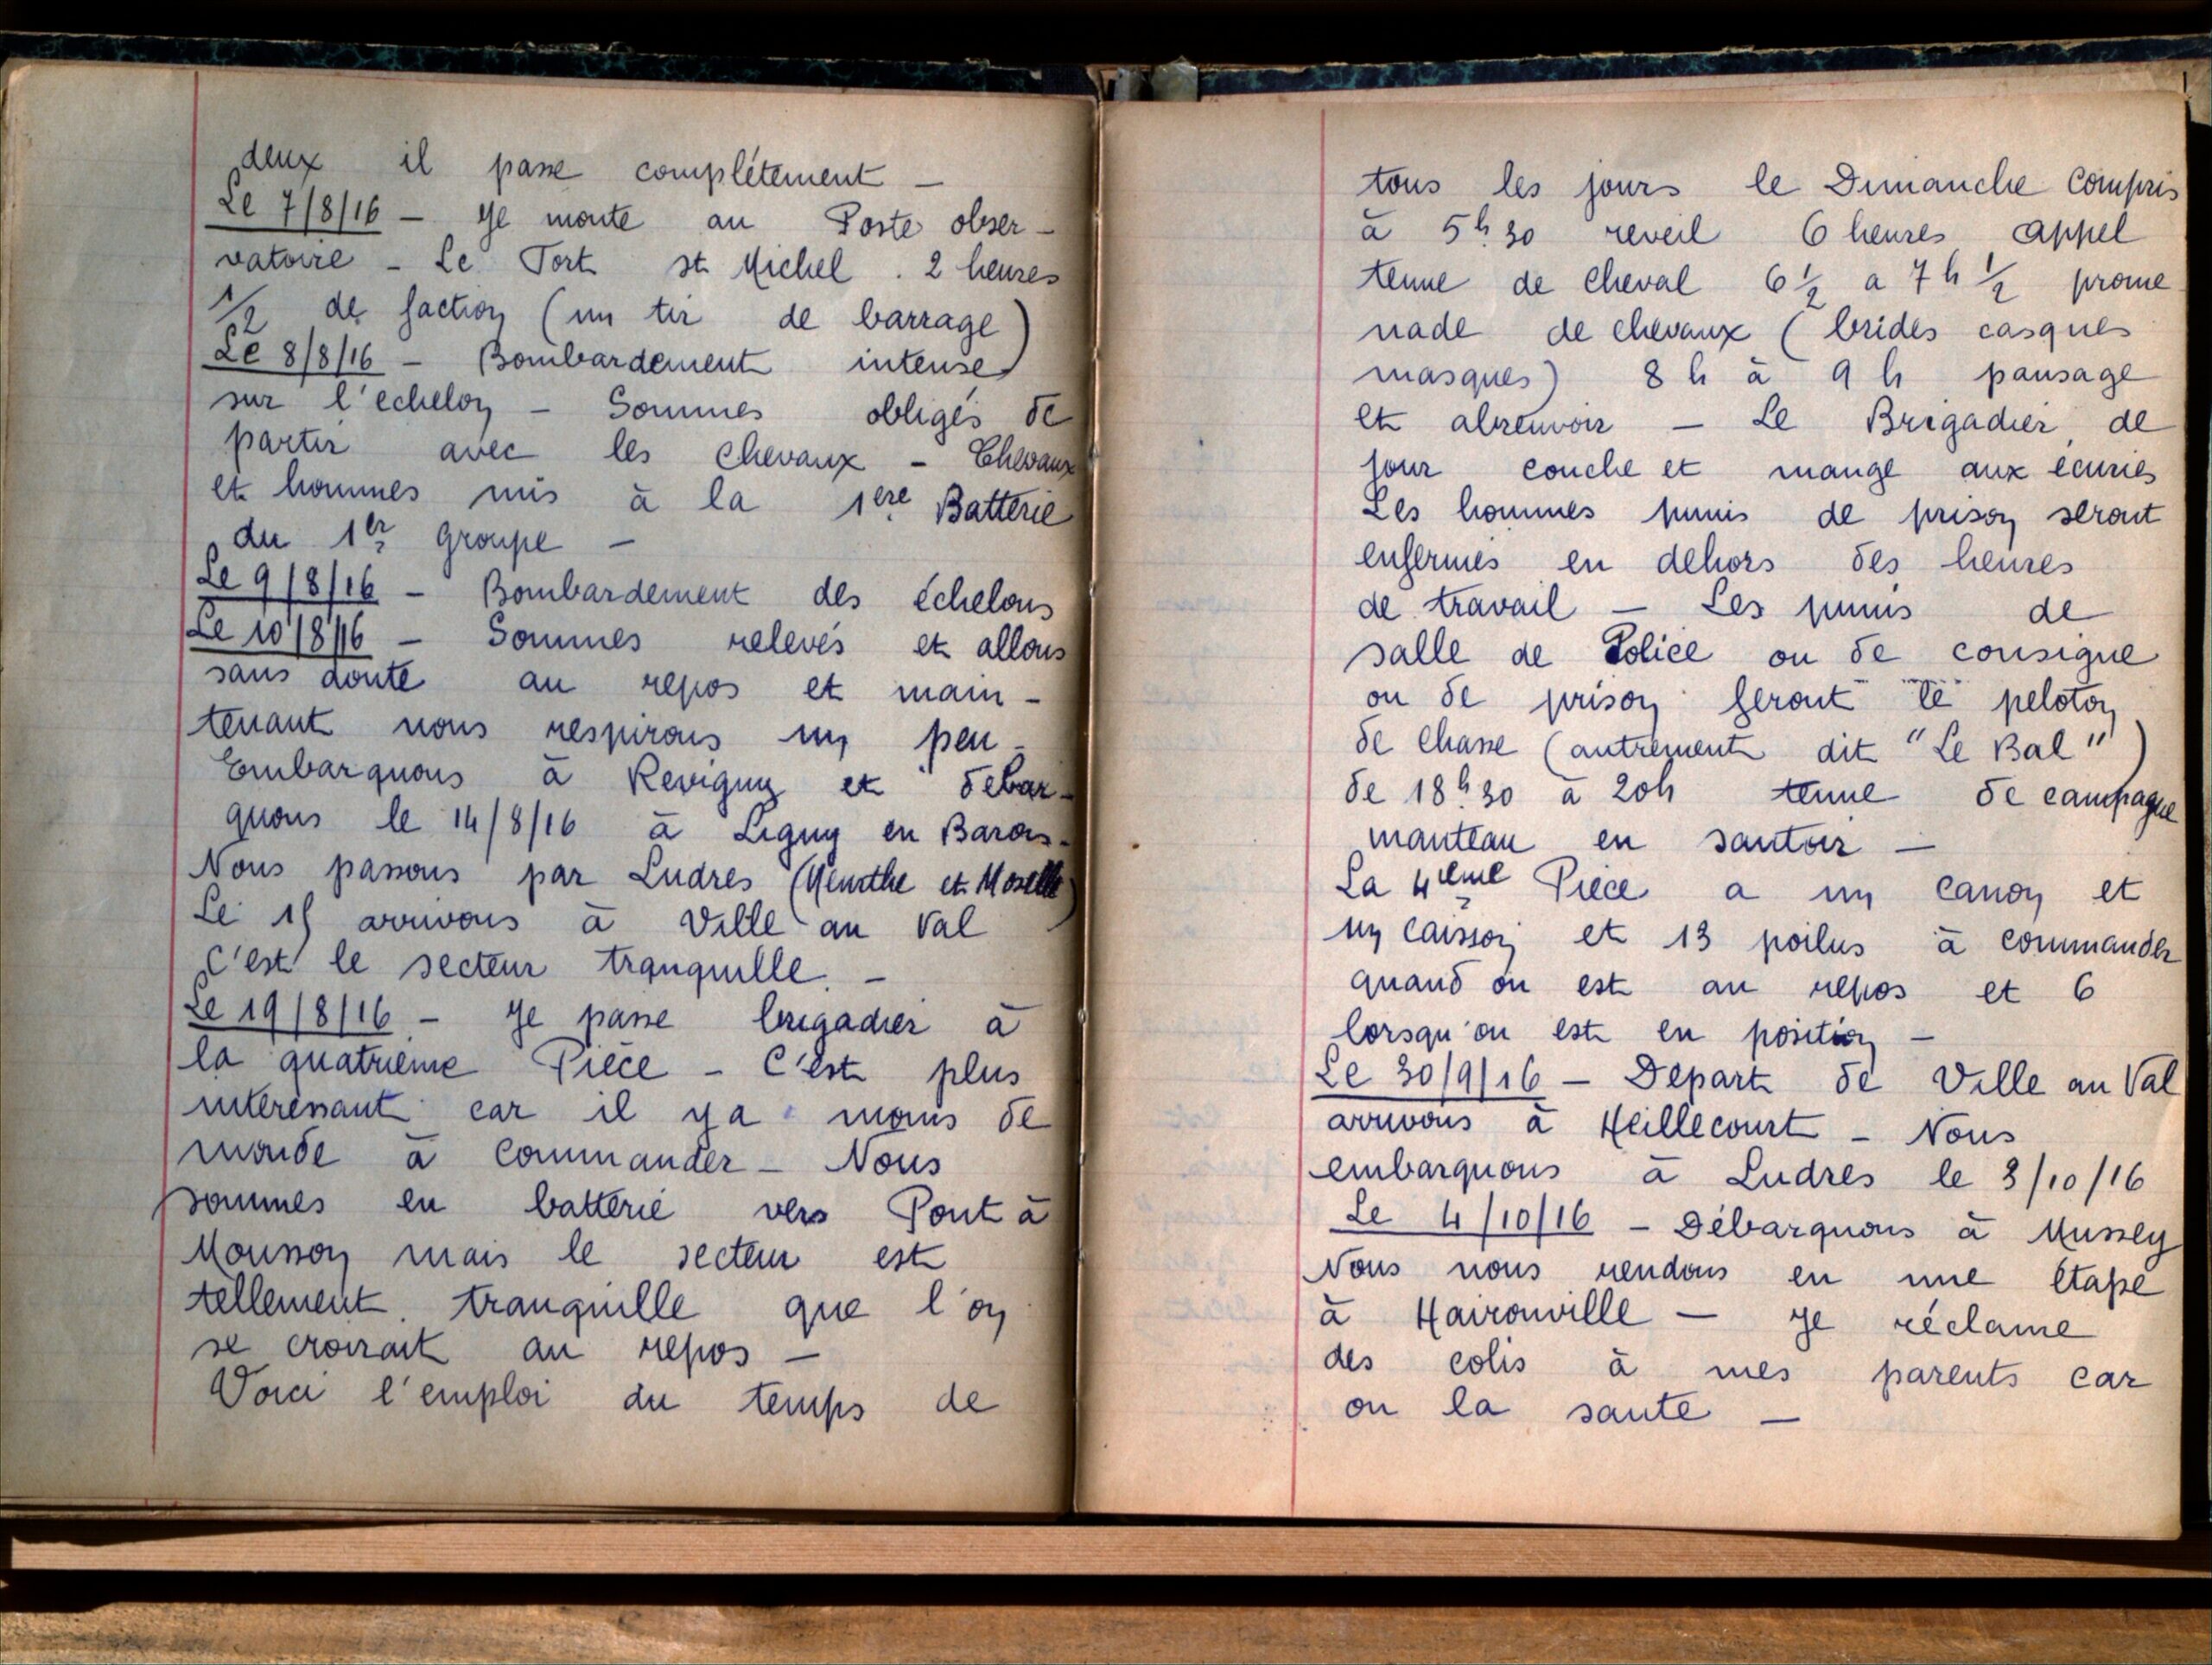 deux il passe complétement -
Le 7/8/16 - Je monte au Poste obser-
vatoire - Le Fort St Michel . 2 heures
1/2 de faction (un tir de barrage)
Le 8/8/16 - Bombardement intense
sur l'echelon - Sommes obligés de
partir avec les chevaux - Chevaux
et hommes mis à la 1ere Batterie
du 1er groupe -
Le 9/8/16 - Bombardement des échelons
Le 10/8/16 - Sommes relevés et allons
sans doute au repos et main-
tenant nous respirons un peu -
Embarquons à Revigny et débar-
quons le 14/8/16 à Ligny en Barois -
Nous passons par Ludres (Meurthe et Moselle)
Le 15 arrivons à Ville au Val
C'est le secteur tranquille. -
Le 19/8/16 - Je passe brigadier à
la quatrième Pièce - C'est plus
intéressant car il y a moins de
monde à commander - Nous
sommes en batterie vers Pont à
Mousson mais le secteur est
tellement tranquille que l'on
se croirait au repos -
Voici l'emploi du temps de
tous les jours le Dimanche compris
à 5h30 reveil 6 heures appel
tenue de cheval 6 1/2 a 7 h 1/2 prome
nade de chevaux (brides casques
masques) 8 h à 9 h pansage
et abreuvoir - Le Brigadier de
jour couche et mange aux écuries
Les hommes punis de prison seront
enfermés en dehors des heures
de travail - Les punis de
salle de Police ou de consigne
ou de prison feront le peloton
de chasse (autrement dit "Le Bal")
de 18h30 à 20h tenue de campagne
manteau en sautoir -
La 4ieme Pièce a un canon et
un caisson et 13 poilus à commander
quand on est au repos et 6
lorsqu'on est en position -
Le 30/9/16 - Depart de Ville au Val
arrivons à Heillecourt - Nous
embarquons à Ludres le 3/10/16
Le 4/10/16 - Débarquons à Mussey
Nous nous rendons en une étape
à Haironville - Je réclame
des colis à mes parents car
on la saute -